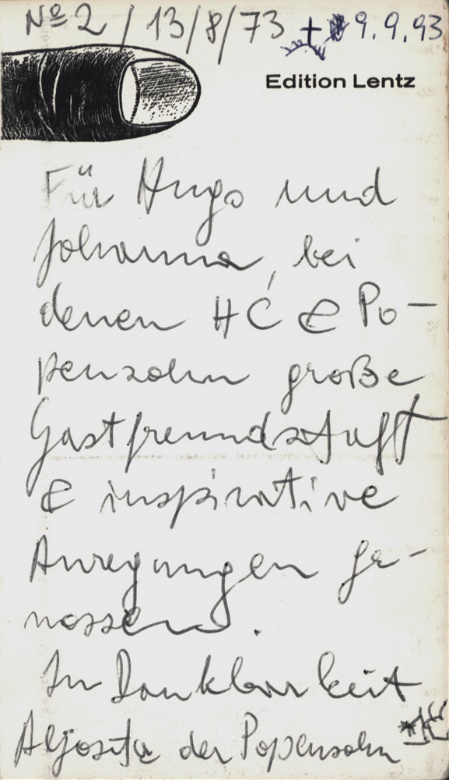 № 2 / 13/8/73 + 9.9.93
Edition Lentz
Für Hugo und
Johanna, bei
denen HĆ & Po-
penzohn große
Gastfreundschaft
& inspirative
Anregungen ge-
nossen.
In Dankbarkeit
der Popenzohn